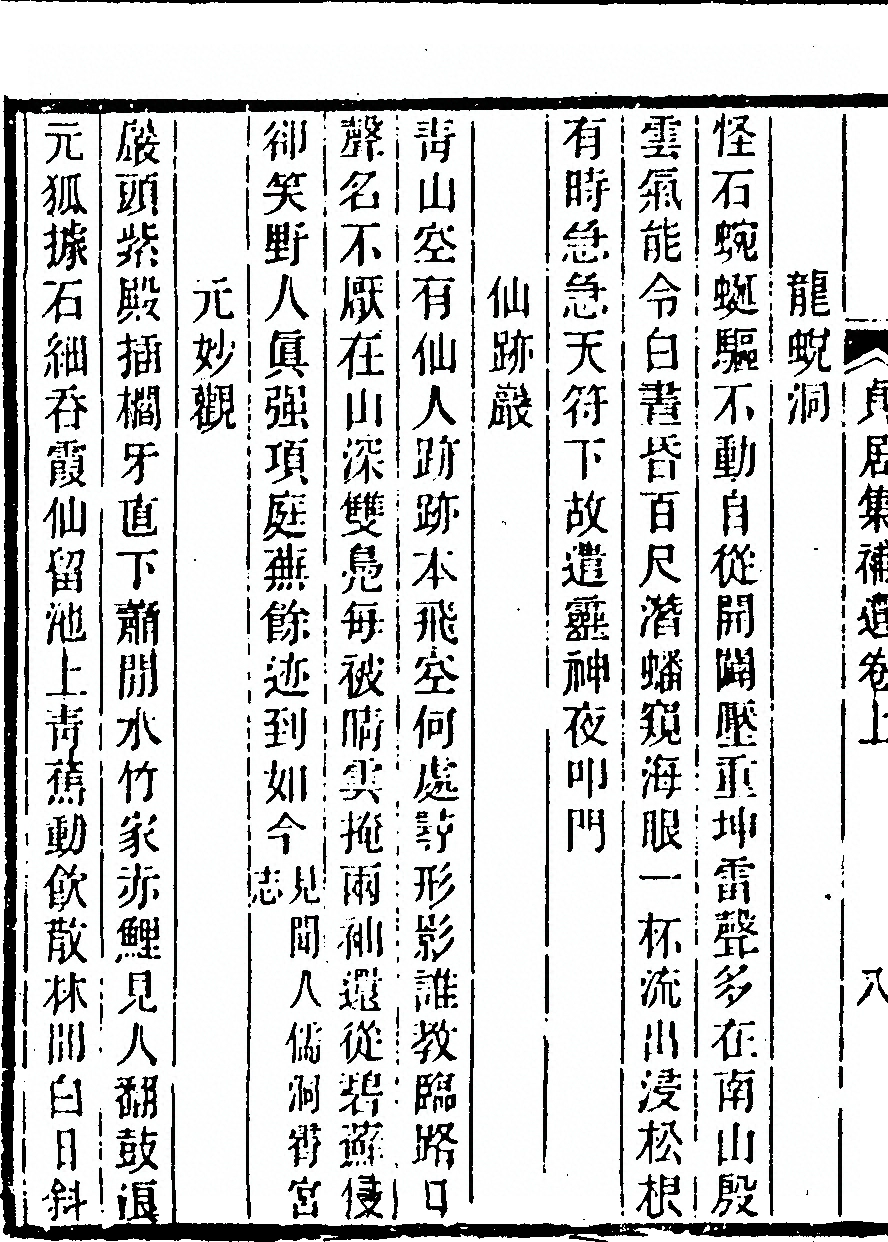 貞居集補遺卷上 八
龍蛻洞
怪石蜿蜒驅不動自從開闢壓重坤雷聲多在南山殷
雲氣能令白晝昏百尺潛蟠窺海眼一杯流出浸松根
有時急急天符下故遣靈神夜叩門
仙跡巖
靑山空有仙人跡跡本飛空何處尋形影誰教臨路口
聲名不厭在山深雙鳧每被晴雲掩兩袖還從碧蘚侵
卻笑野人眞强項庭蕪餘迹到如今見聞人儒洞霄宮志
元妙觀
巖頭紫殿插檐牙直下蕭閒水竹家赤鯉見人翻鼓浪
元狐據石細吞霞仙留池上靑蕉動飮散林間白日斜